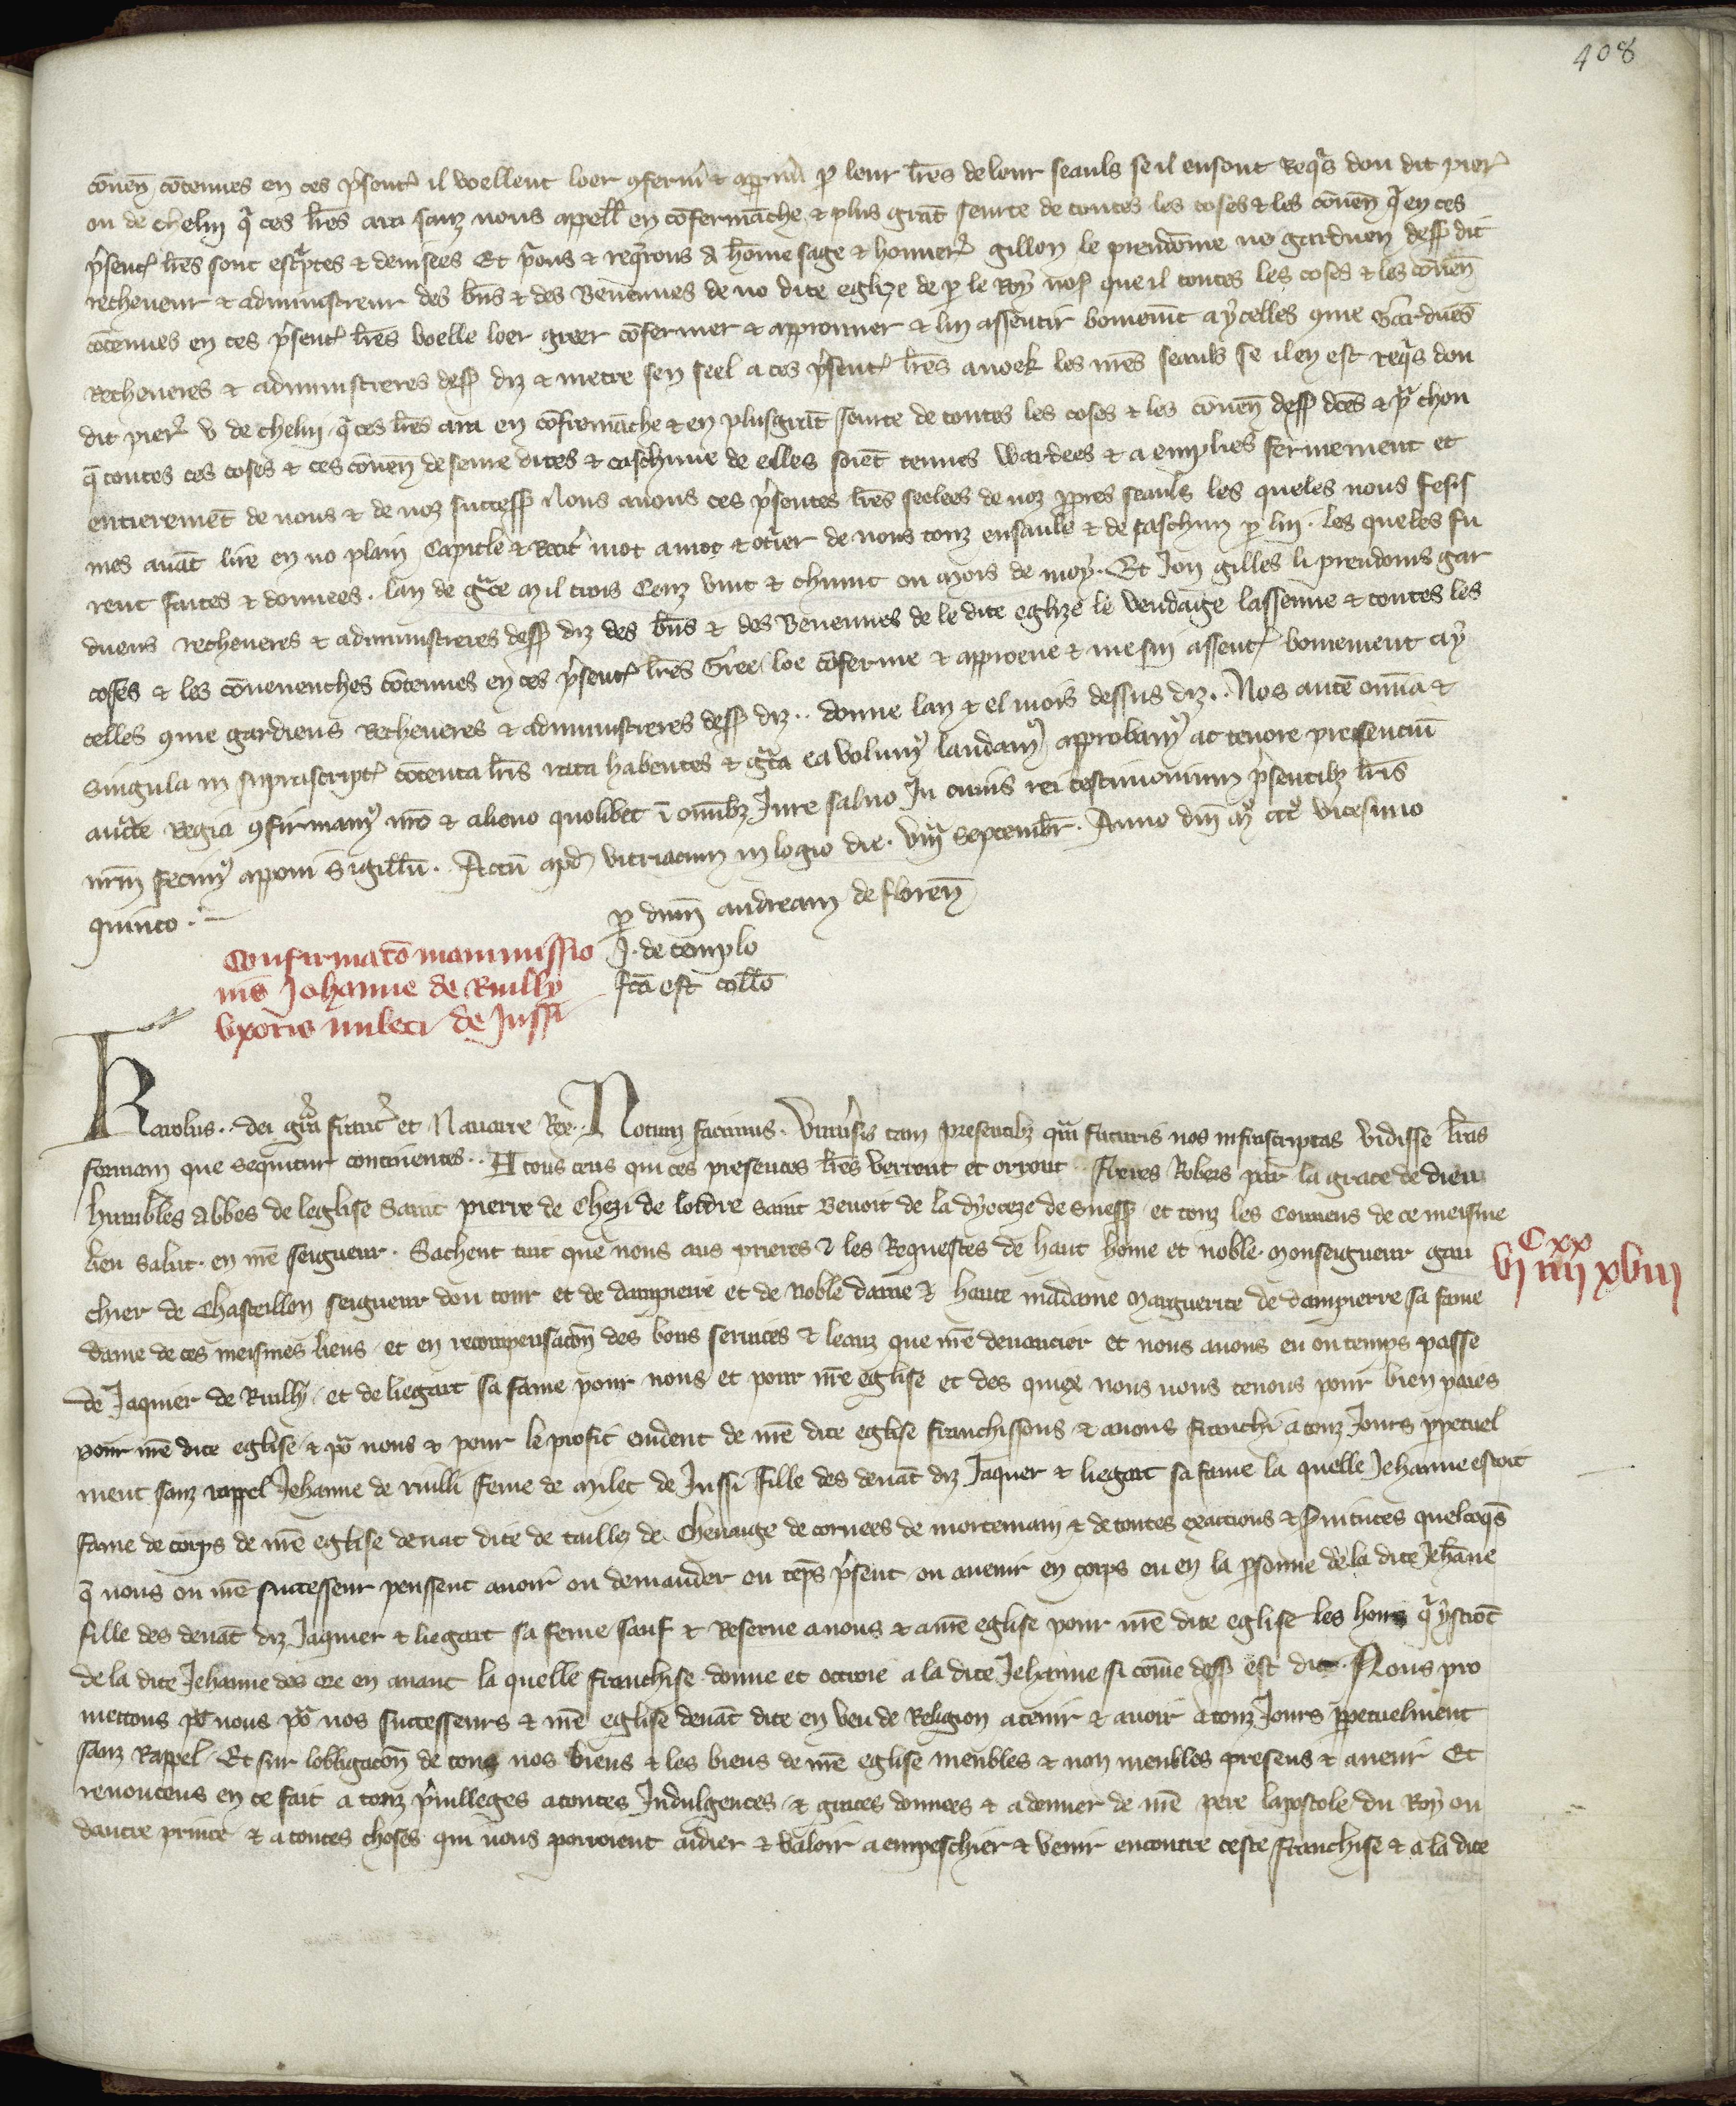 408
cōven̄ cōtenues en ces p̄sent̉ il voellent loer ꝯferm̉ & apprūv̉ ꝑ leur lr̄es de leur seauls se il en sont req̉s dou dit pier̉
ou de chelui q̉ ces lr̄es ara sanz nous appell̄ en cōfermāche & plus grāt seurte de toutes les coses & les cōven̄ q̉ en ces
p̄sent̉ lr̄es sont esc̉ptes & devisees Et p̉ons & req̉rons a hōme sage & honner̉ gillon le preudōme no garduen dess̄ dit
recheveur & aduministreur des bn̄s & des Revenues de no dite eglize de ꝑ le Roy nos̄ que il toutes les coses & les cōven̄
cōtenues en ces p̄sent̉ lr̄es voelle loer greer cōfermer & approuver & lui assentir bonemēt a ycelles ꝯme Garduēs
Recheveres & aduministreres dess̄ diz & metre sen seel a ces p̄sent̉ lr̄es avoek les nr̄es seauls se il en est req̉s dou
dit pier̉ v de chelui q̉ ces lr̄es ara en cōfremāche & en plus grāt seurte de toutes les coses & les cōven̄ dess̄ dc̄es & p̉ chou
q̄ toutes ces coses & ces cōven̄ deseure dites & caschune de elles soiēt tenues wardees & a emplies fermement et
entieremēt de nous & de noz success̄ Nous avons ces p̄sentes lr̄es seelees de noz ꝓpres seauls les queles nous fesis
mes avāt lire en no plain Capitle & Recit̉ mot a mot & ot̉ier de nous touz ensaule & de caschun ꝑ lui. les queles fu
rent faites & donnees. lan de gr̄ce Mil trois Cenz vint & chiunt ou mois de may. Et Jou gilles li preudoms gar
duens recheveres & aduministreres dess̄ diz des bn̄s & des Revenues de le dite eglize le vendaige lassenne & toutes les
coses & les cōvenenches cōtenues en ces p̄sent̉ lr̄es Gree loe cōferme & approeve & me sui assent̉ bonement a y
celles ꝯme gardiens Recheveres & aduministreres dess̄ diz.. donne lan & el mois dessus diz.. Nos autē omnia &
singula in suprascript̉ cōtenta lr̄is rata habentes & gr̄ta ea volumꝰ laudamꝰ approbamꝰ ac tenore presenciū
auct̄te Regia ꝯfirmamꝰ nr̄o & alieno quolibet ī omībꝫ Jure salvo In cuius rei testimonium p̄sentibꝫ lr̄is
nr̄m fecimꝰ apponi sigillū. Actū apđ vitriacum in logio die. viijᵃ septembr̄. Anno dn̄i mͦ cccͦ vicesimo
quinto.
ꝑ dn̄m andream de floren̄
J. de templo
fc̄a est coll̄o
Confirmatō manumissio
nis Johanne de Ruilly
uxoris mileti de Jussi
Karolus.. dei gr̄a franc̉ et Navarre Rex. Notum facimus. Univ̉sis tam presentibꝫ qm̄ futuris nos infrascriptas vidisse lr̄as
formam que sequitur continentes.. A tous ceus qui ces presentes lr̄es verront et orront.. Freres Robers par la grace de dieu
humbles Abbes de leglise Saint pierre de Chezi de lordre saint Benoit de la dyoceze de Suess̄ et touz les Couvens de ce meisme
lieu salut. en nr̄e seigneur. Sachent tuit que nous aus prieres & les Requestes de haut home et noble. Monseigneur gau
chier de Chasteillon seigneur dou tour et de dampierre et de Noble dame & haute madame Marguerite de dampierre sa fame
Cxx
vj iiij xviij
dame de ces meismes lieus et en recompensacōn des bons services & leauz que nr̄e devancier et nous avons eu ou temps passe
de Jaquier de Ruilly. et de liegart sa fame pour nous et pour nr̄e eglise et des quiex nous nous tenons pour bien paies
pour nr̄e dite eglise & po̾ nous & pour le profit evident de nr̄e dite eglise franchissons & avons franchi a touz Jours ꝑpetuel
ment sanz rappel Jehanne de ruilli feme de Milet de Jussi fille des devāt diz Jaquier & liegart sa fame la quelle Jehanne estoit
fame de corps de nr̄e eglise devāt dite de tailles de Chevaige de corvees de mortemain & de toutes exactions & s̉vitutes quelcoq̄s
q̄ nous ou nr̄e successeur peussent avoir ou demander ou tēps p̄sent ou avenir en corps ou en la ꝑsonne de la dite Jehāne
fille des devāt diz Jaquier & liegart sa feme sauf & Reserve a nous & a nr̄e eglise pour nr̄e dite eglise les hoirs q̉ ystrōt
de la dite Jehanne des ore en avant la quelle franchise. donne et ottroie a la dite Jehanne si come dess̄ est dit. Nous pro
mettons po̾ nous po̾ nos successeurs & nr̄e eglise devāt dite en veu de Religion a tenir & avoir a touz Jours ꝑpetuelment
sanz Rappel. Et sur lobligacōn de tous nos biens & les biens de nr̄e eglise meubles & non meubles presens & avenir Et
renoncens en ce fait a touz p̉villeges a toutes Indulgences. & graces donnees & a donner de nr̄e pere lapostole du Roy ou
dautre prince & a toutes choses qui nous porroient aidier & valoir a empeschier & venir encontre ceste franchise & a la dite